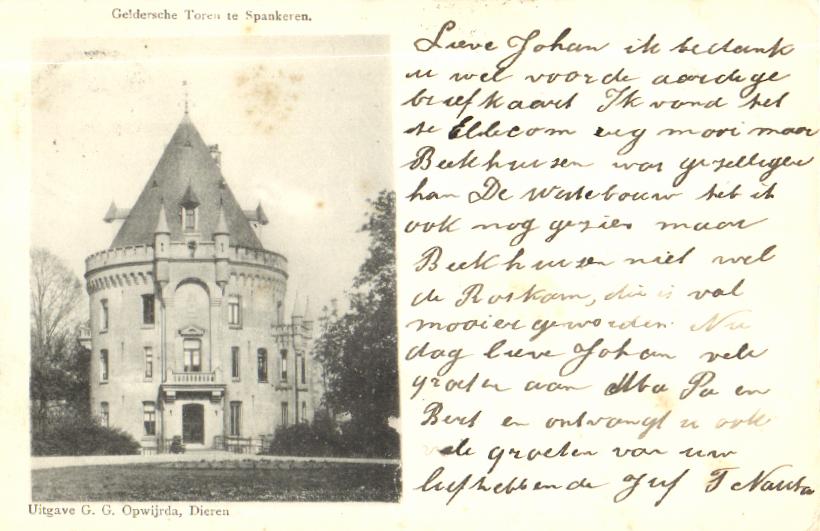 Geldersche Toren te Spankeren.
Lieve Johan ik bedank
u wel voor de aardige
briefkaart Ik vond het
te Ellecom erg mooi maar
Beekhuisen was gezelliger
han De Watebouw heb ik
ook nog gezien maar
Beekhuisen niet wel
de Roskam, die is val
mooier geworden. Nu
dag lieve Johan vele
groeten aan Ma Pa en
Bert en ontvangt u ook
vele groeten van uw
liefhebbende Juf T Nauta
Uitgave G. G. Opwijrda, Dieren